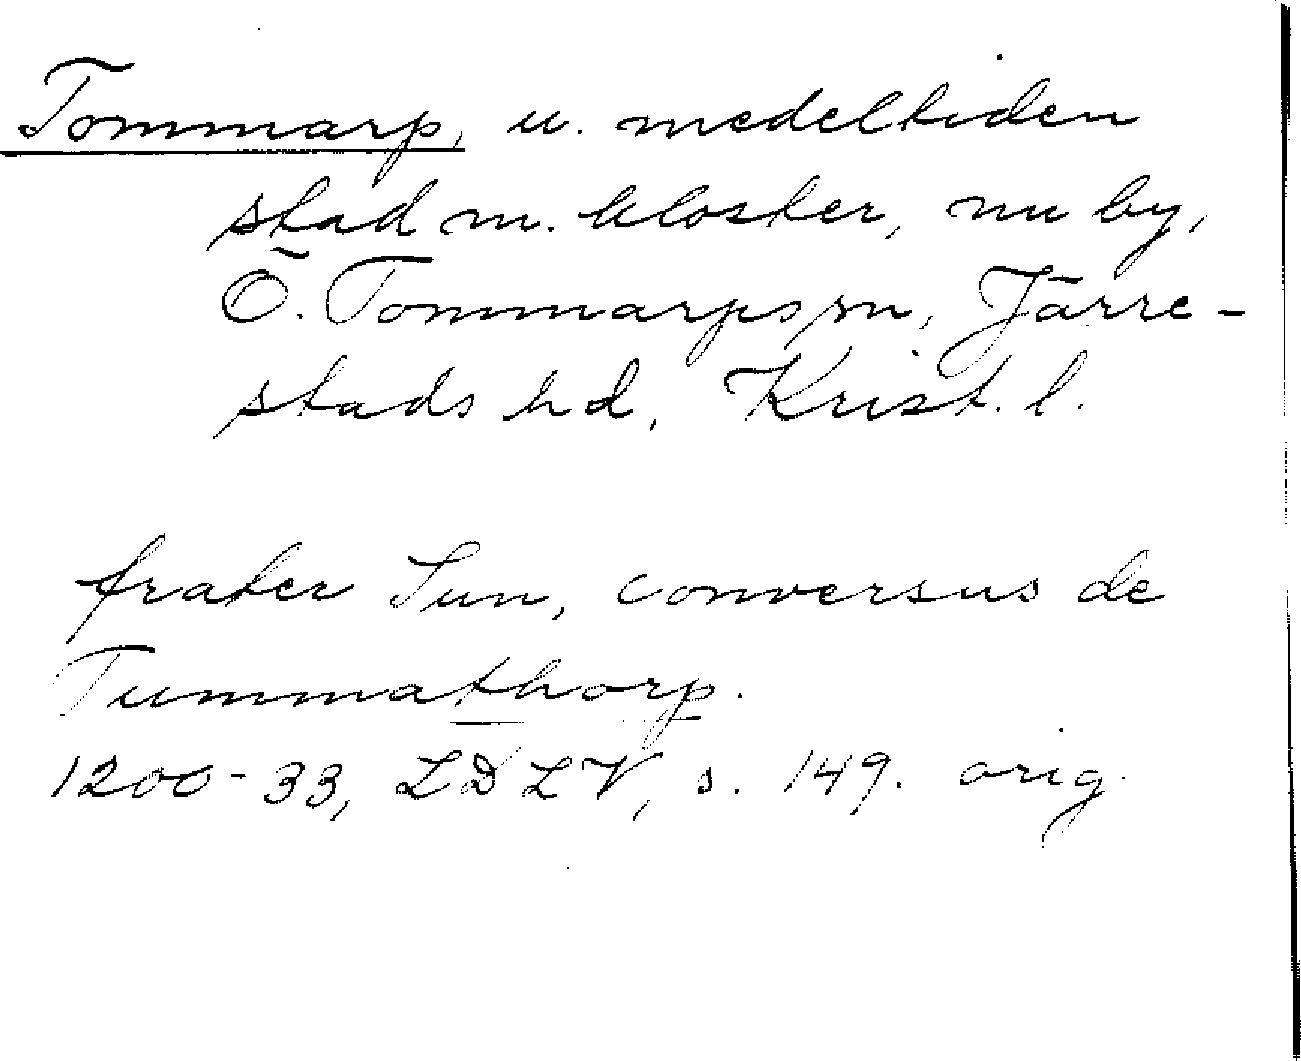 Tommarp, u. medeltiden
stad m. kloster, nu by,
Ö. Tommarps sn, Järre-
stads hd, Krist. l.
frater Sun, conversus de
Tummathorp.
1200-33, LDLV, s. 149. orig.